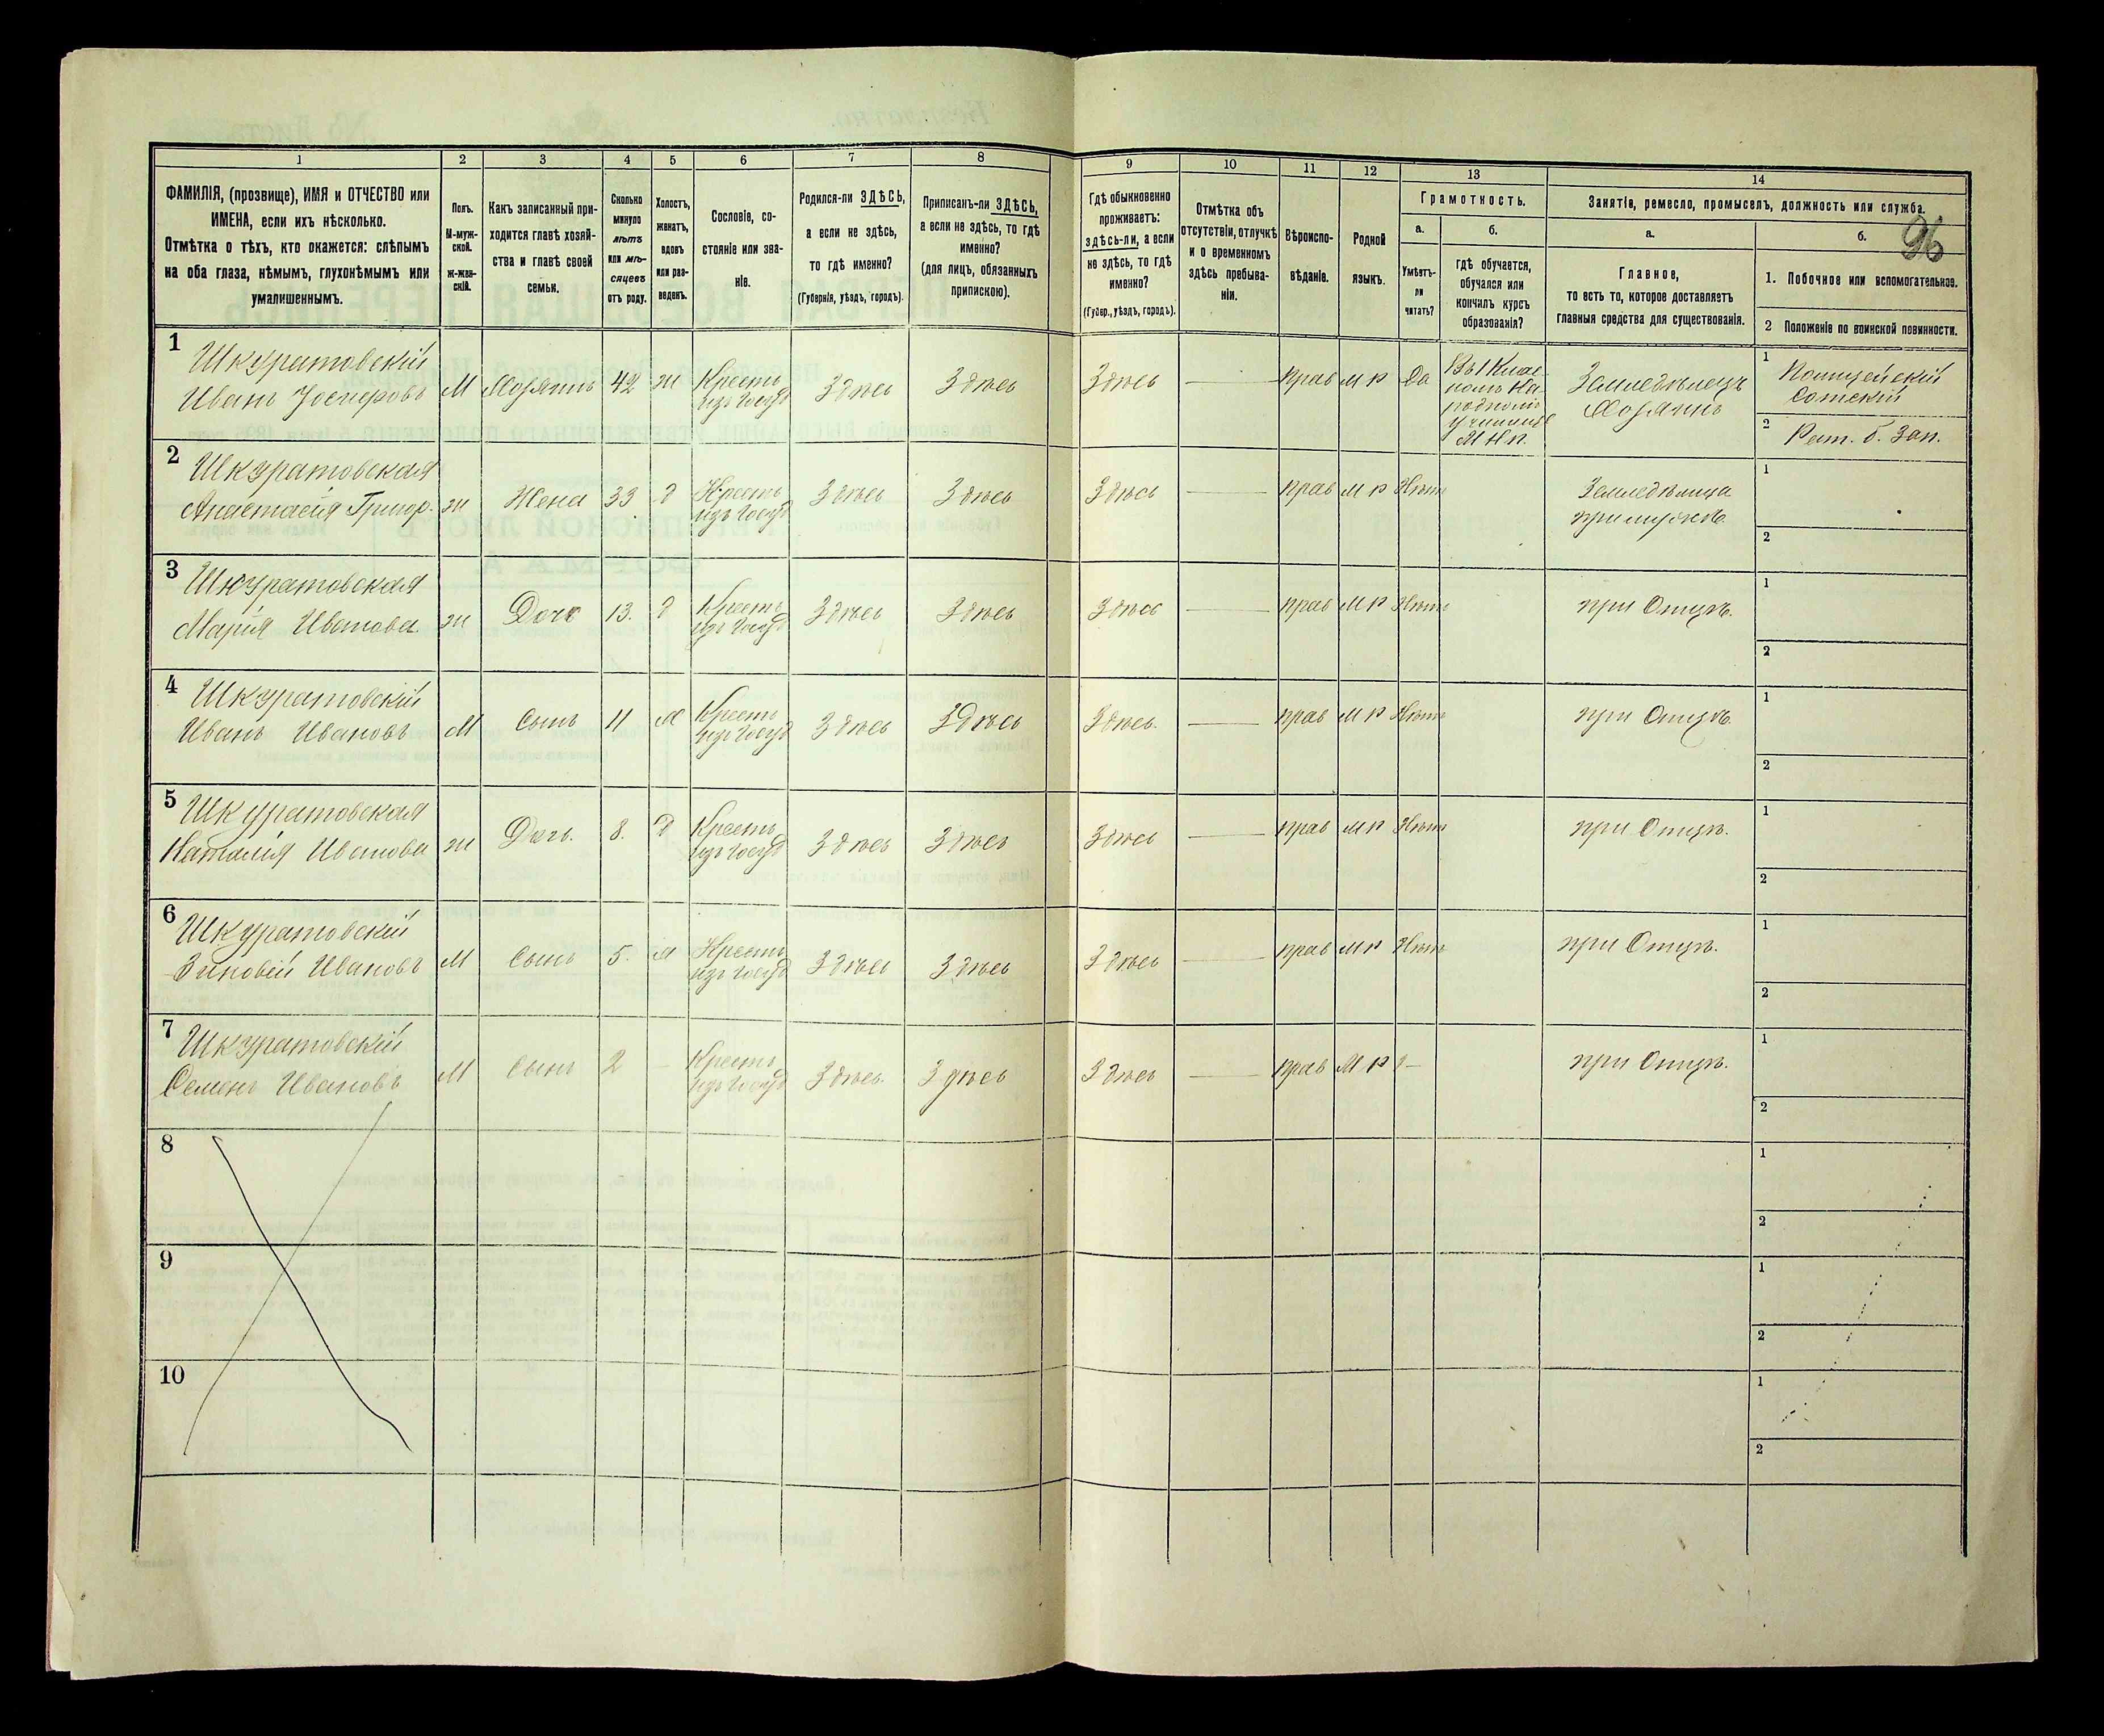 96
1 2 3 4 5 6 7 8 9 10 11 12 13 14
ФАМИЛІЯ, (прозвище), ИМЯ и ОТЧЕСТВО или
ИМЕНА, если ихъ нѣсколько.
Отмѣтка о тѣхъ, кто окажется: слѣпымъ
на оба глаза, нѣмымъ, глухонѣмымъ или
умалишеннымъ.
Полъ.
М-муж-
ской.
ж-жен-
скій.
Какъ записанный при-
ходится главѣ хозяй-
ства и главѣ своей
семьи.
Сколько
минуло
лѣтъ
или мѣ-
сяцевъ
отъ роду.
Холостъ,
женатъ,
вдовъ
или раз-
веденъ.
Сословіе, со-
стояніе или зва-
ніе.
Родился-ли ЗДѢСЬ,
а если не здѣсь,
то гдѣ именно?
(Губернія, уѣздъ, городъ).
Приписанъ-ли ЗДѢСЬ,
а если не здѣсь, то гдѣ
именно?
(для лицъ, обязанныхъ
припискою).
Гдѣ обыкновенно
проживаетъ:
здѣсь-ли, а если
не здѣсь, то гдѣ
именно?
(Губер., уѣздъ, городъ).
Отмѣтка объ
отсутствіи, отлучкѣ
и о временномъ
здѣсь пребыва-
ніи.
Вѣроиспо-
вѣданіе.
Родной
языкъ.
Грамотность.
а.
Умѣетъ-
ли
читать?
б.
гдѣ обучается,
обучался или
кончилъ курсъ
образованія?
Занятіе, ремесло, промыселъ, должность или служба.
а.
Главное,
то есть то, которое доставляетъ
главныя средства для существованія.
б.
1. Побочное или вспомогательное.
2 Положеніе по воинской повинности.
1 Шкуратовскій
Иванъ Іосифовъ М Хозяинъ 42 ж Крестъ
изъ Госуд Здѣсь Здѣсь Здѣсь — прав м р Да
народномъ
училищѣ
М Н П.
Земледѣлецъ
Хозяинъ
1 Полицейскій
Сотскій
2 Рат. б. Зап.
2 Шкуратовская
Анастасія Григор. ж Жена 33 д Крестъ
изъ Госуд Здѣсь Здѣсь Здѣсь — прав м р Нѣтъ Земледѣлица
при мужѣ
1
2
3 Шкуратовская
Марія Иванова ж Дочь 13. д Крестъ
изъ Госуд Здѣсь Здѣсь Здѣсь — прав м р Нѣтъ при Отцѣ.
1
2
4 Шкуратовскій
Иванъ Ивановъ М Сынъ 11 М Крестъ
изъ Госуд Здѣсь Здѣсь Здѣсь. — прав м р Нѣтъ при Отцѣ
1
2
5 Шкуратовская
Наталія Иванова ж Дочь. 8. д Крестъ
изъ Госуд Здѣсь Здѣсь Здѣсь — прав м р Нѣтъ при Отцѣ.
1
2
6 Шкуратовскій
Зиновій Ивановъ М Сынъ 5. М Крестъ
изъ Госуд Здѣсь Здѣсь Здѣсь — прав м р Нѣтъ при Отцѣ.
1
2
7 Шкуратовскій
Семенъ Ивановъ М Сынъ 2 — Крестъ
изъ Госуд Здѣсь. Здѣсь Здѣсь — прав м р — при Отцѣ.
1
2
8
1
2
9
1
2
10
1
2